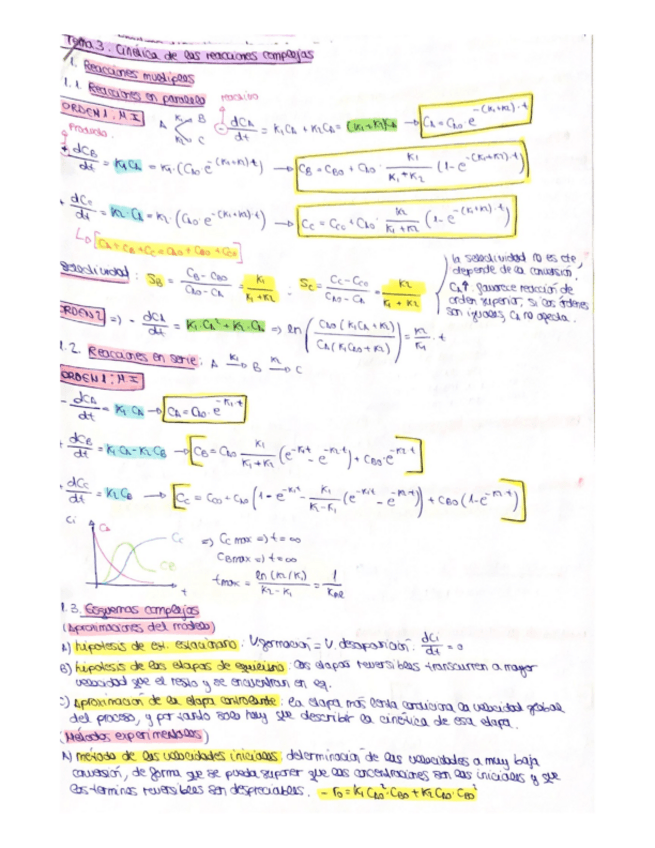 Tema 3. Cinética de las reacciones complejas
1. Reacciones múltiples
1.1. Reacciones en paralelo
reactivo
ORDEN 1, n I
A K1 B K2 C
- dCA/dt = K1CA + K2CA = (K1+K2)CA → CA = CA0 · e^-(K1+K2)·t
Producto.
+ dCB/dt = K1CA = K1·(CA0 e^-(K1+K2)·t) → CB = CB0 + CA0 · K1/(K1+K2) (1-e^-(K1+K2)·t)
+ dCc/dt = K2·CA = K2·(CA0·e^-(K1+K2)·t) → Cc = Cc0 + CA0 · K2/(K1+K2) (1-e^-(K1+K2)·t)
↳ [CA + CB + Cc = CA0 + CB0 + Cc0]
Selectividad: SB = (CB - CB0)/(CA0 - CA) = K1/(K1+K2) ; Sc = (Cc - Cc0)/(CA0 - CA) = K2/(K1+K2)
la selectividad no es cte,
depende de la conversión.
CA↑ favorece reacción de
orden superior, si los órdenes
son iguales, CA no afecta.
ORDEN 2 => - dCA/dt = K1·CA² + K2·CA => ln (CA0 (K1CA + K2) / CA (K1CA0 + K2)) = K2/K1 · t
1.2. Reacciones en serie: A K1→ B K2→ C
ORDEN 1; n I
- dCA/dt = K1 CA → CA = CA0 · e^-K1·t
+ dCB/dt = K1CA - K2CB → [CB = CA0 K1/(K1+K2) (e^-K1t - e^-K2·t) + CB0·e^-K2·t]
+ dCc/dt = K2CB → [Cc = Cc0 + CA0 (1 - e^-K1t - K1/(K2-K1) (e^-K1t - e^-K2·t)) + CB0 (1-e^-K2·t)]
Ci CA Cc CB t
=> Cc max => t = ∞
CB max => t = ∞
tmax = ln(K2/K1)/(K2 - K1) = 1/
1.3. Esquemas complejos
(Aproximaciones del modelo)
A) hipótesis de est. estacionario: V.formación = V. desaparición. dCi/dt = 0
B) hipótesis de las etapas de equilibrio: las etapas reversibles transcurren a mayor
velocidad que el resto y se encuentran en eq.
C) Aproximación de la etapa controlante: la etapa más lenta condiciona la velocidad global
del proceso, y por tanto solo hay que describir la cinética de esa etapa.
(Métodos experimentales)
A) método de las velocidades iniciales: determinación de las velocidades a muy baja
conversión, de forma que se pueda suponer que las concentraciones son las iniciales y que
los términos reversibles son despreciables. - r0 = K1 CA0² · CB0 + K2 CA0 · CB0²